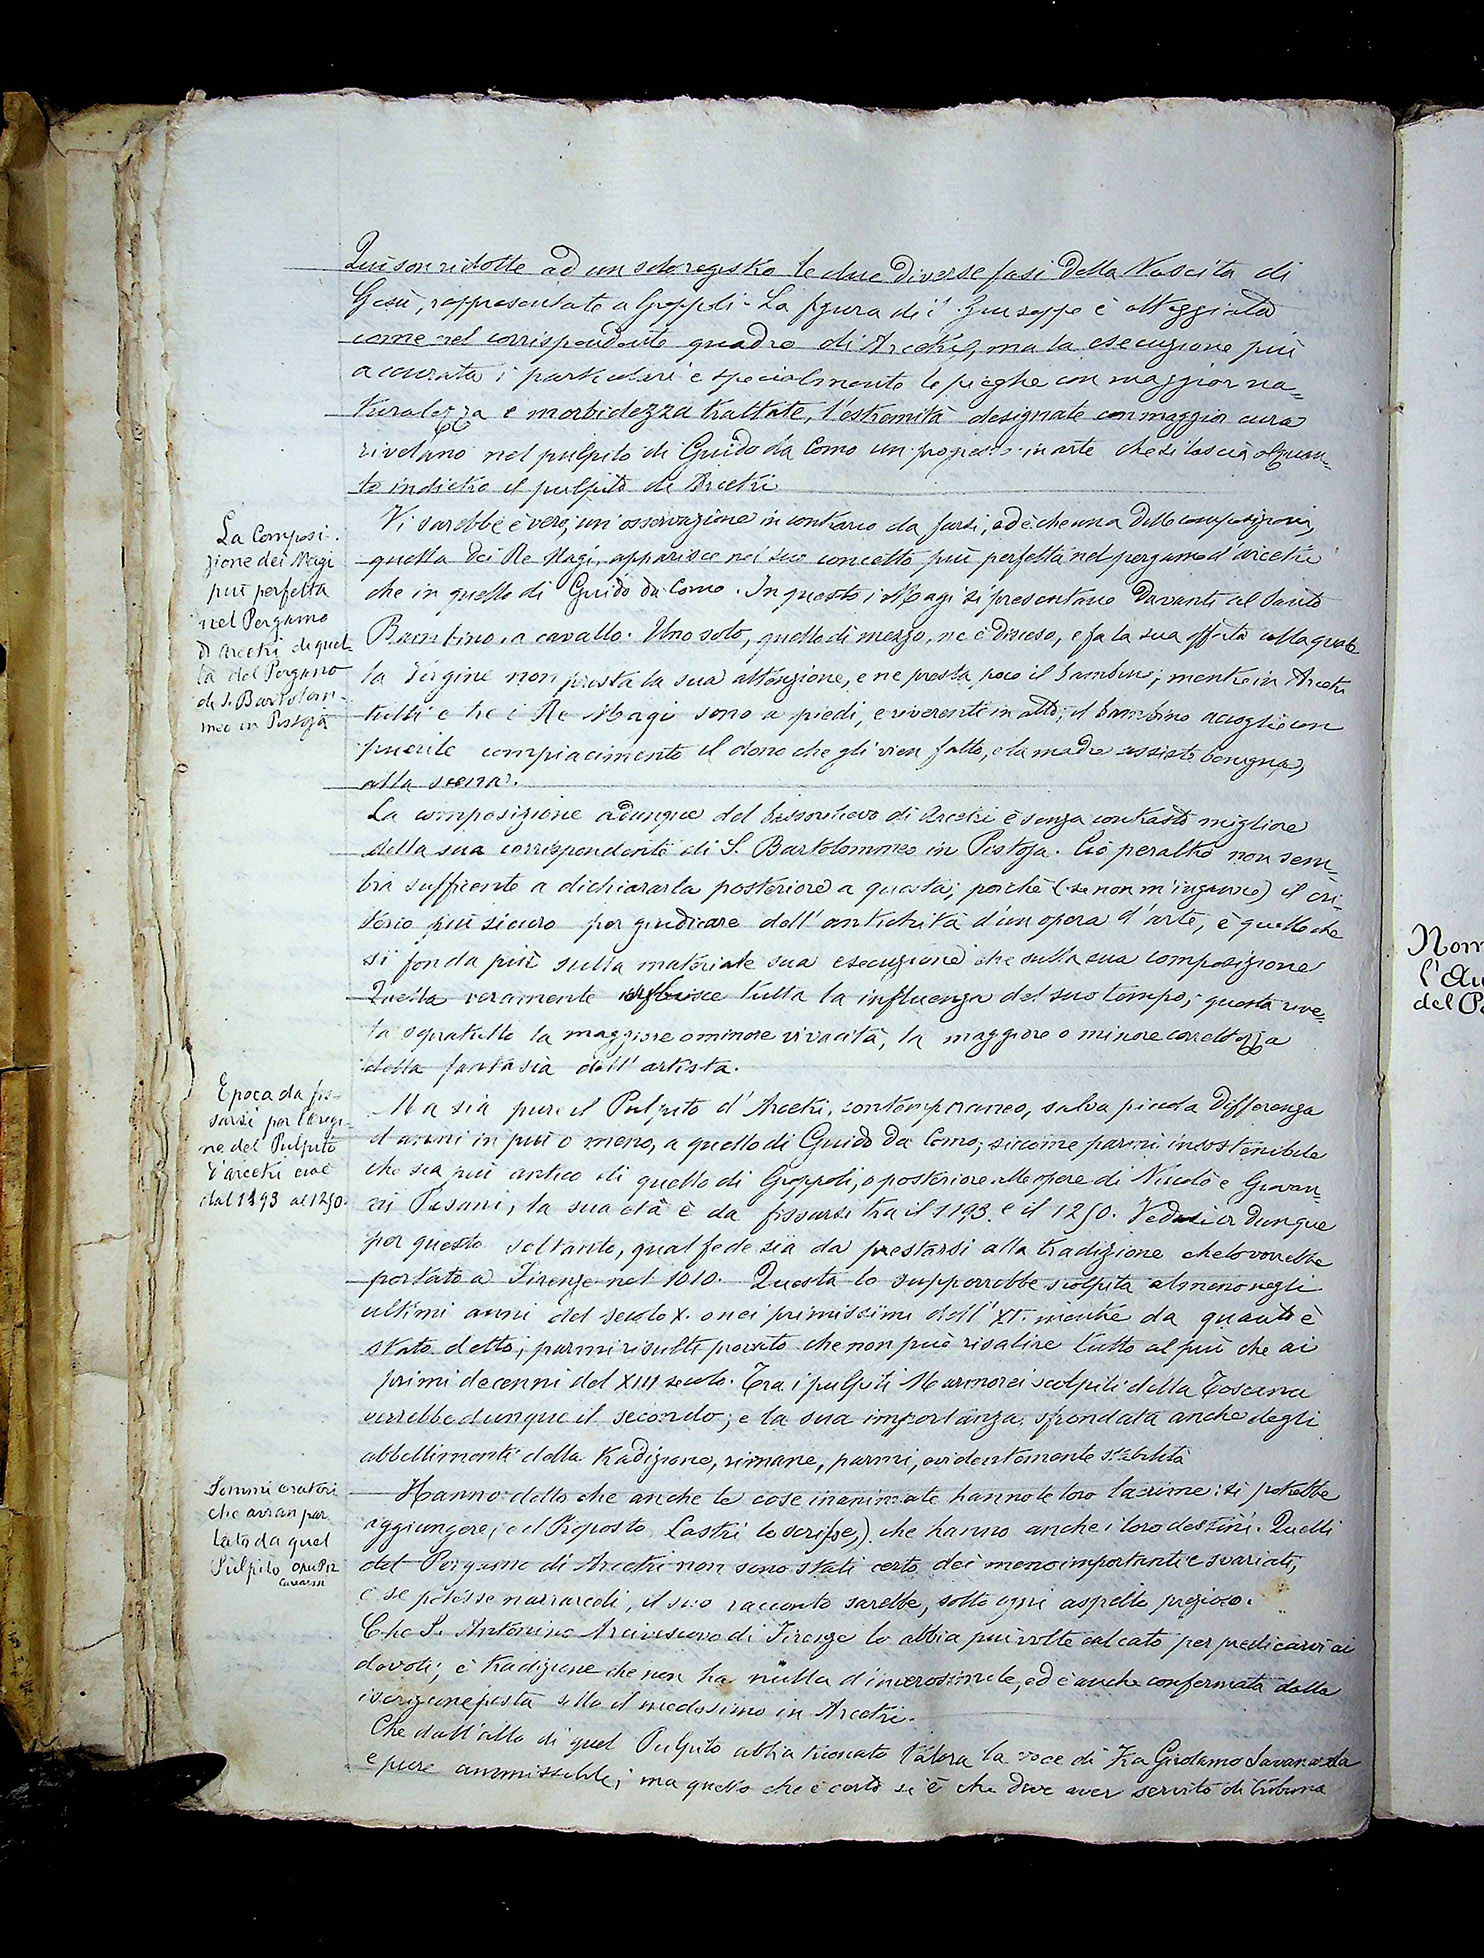 Qui son ridotte ad un solo registro le due diverse fasi della Nascita di
Gesù, rappresentate a Groppoli. La figura di S. Giuseppe è atteggiata
come nel corrispondente quadro di Arcetri, ma la esecuzione più
accurata i particolari e specialmente le pieghe con maggior na-
turalezza e morbidezza trattate, l'estremità designate con maggior cura
rivelano nel pulpito di Guido da Como un progresso in arte che si lascia alquan-
to indietro il pulpito di Arcetri
La Composi-
zione dei Magi
più perfetta
nel Pergamo
d'Arcetri di quel-
la del Pergamo
di S. Bartolom-
meo in Pistoja
Vi sarebbe è vero, un'osservazione in contrario da farsi, ed è che una delle composizioni,
quella dei Re Magi, apparisce nel suo concetto più perfetta nel pergamo d'Arcetri
che in quello di Guido da Como. In questo i Magi si presentano davanti al Santo
Bambino a cavallo. Uno solo, quello di mezzo, ne è disceso, e fa la sua offerta alla quale
la Vergine non presta la sua attenzione, e ne presta poco il bambino; mentre in Arcetri
tutti e tre i Re Magi sono a piedi, e riverenti in atto; il bambino accoglie con
puerile compiacimento il dono che gli vien fatto, e la madre assiste benigna,
alla scena.
La composizione adunque del bassorilievo di Arcetri è senza contrasto migliore
della sua corrispondente di S. Bartolommeo in Pistoja. Ciò peraltro non sem-
bra sufficiente a dichiararla posteriore a questa; poichè (se non m'inganno) il cri-
terio più sicuro per giudicare dell'antichità d'un opera d'arte, è quello che
si fonda più sulla materiale sua esecuzione che sulla sua composizione
Quella veramente subisce tutta la influenza del suo tempo; questa rive-
la sopratutto la maggiore o minore vivacità, la maggiore o minore correttezza
della fantasia dell'artista.
Epoca da fis-
sarsi per l'origi-
ne del Pulpito
d'Arcetri cioè
dal 1193 al 1250.
Ma sia pure il Pulpito d'Arcetri, contemporaneo, salva piccola differenza
d'anni in più o meno, a quello di Guido da Como; siccome parmi insostenibile
che sia più antico di quello di Groppoli, o posteriore alle opere di Niccolò e Giovan-
ni Pisani, la sua età è da fissarsi tra il 1193. e il 1250. Vedasi dunque
per questo soltanto, qual fede sia da prestarsi alla tradizione che lo vorrebbe
portato a Firenze nel 1010. Questa lo supporrebbe scolpita almeno negli
ultimi anni del secolo X. o nei primissimi dell'XI. mentre da quanto è
stato detto, parmi risulti provato che non può risalire tutto al più che ai
primi decenni del XIII secolo. Tra i pulpiti Marmorei scolpiti della Toscana
verrebbe dunque il secondo; e la sua importanza, sfrondata anche degli
abbellimenti della tradizione, rimane, parmi, evidentemente stabilita
Sommi oratori
che avran par
lato da quel
Pulpito
Hanno detto che anche le cose inanimate hanno le loro lacrime: si potrebbe
aggiungere, (e il Proposto Lastri lo scrisse,) che hanno anche i loro destini. Quelli
del Pergamo di Arcetri non sono stati certo dei meno importanti e svariati,
e se potesse narrarceli, il suo racconto sarebbe, sotto ogni aspetto prezioso.
Che S. Antonino Arcivescovo di Firenze lo abbia più volte calcato per predicarvi ai
devoti, è tradizione che non ha nulla d'inverosimile, ed è anche confermata dalla
iscrizione posta sotto il medesimo in Arcetri.
Che dall'alto di quel Pulpito abbia tuonato talora la voce di Fra Girolamo Savonarola
è pure ammissibile; ma quello che è certo si è che deve aver servito di tribuna
Nom
l'Au
del P